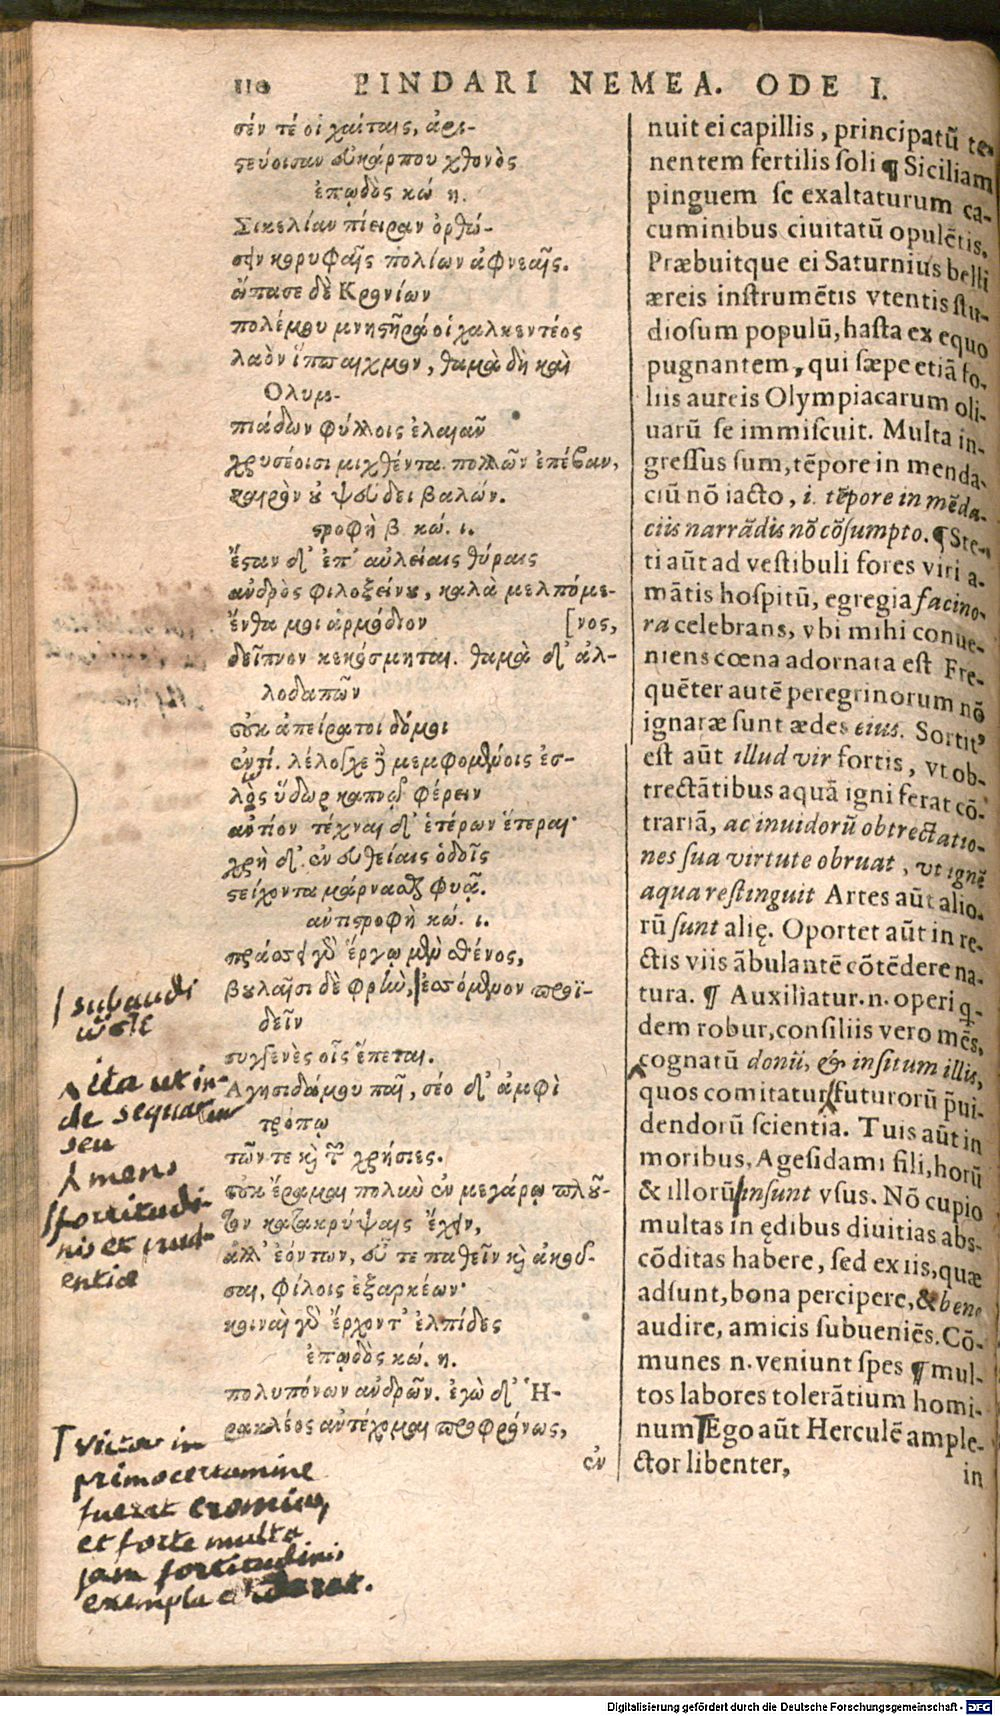 110 PINDARI NEMEA. ODE I.
σέν τέ οἱ χαίταις, ἀρι-
ςεύοισαν εὐκάρπου χθονὸς
ἐπῳδὸς κώ. η.
Σικελίαν πίειραν ὀρθώ-
σειν κορυφαῖς πολίων ἀφνεαῖς.
ὤπασε δὲ Κρονίων
πολέμου μναςῆρά οἱ χαλκεντέος
λαὸν ἵππαιχμον, θαμὰ δὴ καὶ
Ολυμ-
πιάδων φύλλοις ἐλαιᾶν
χρυσέοισι μιχθέντα. πολλῶν ἐπέβαν,
καιρὸν ȣ ψεύδει βαλών.
ςροφὴ β κώ. ι.
Ἔςαν δ' ἐπ' αὐλείαις θύραις
ανδρὸς φιλοξείνȣ, καλὰ μελπόμε-
ἔνθα μοι ἁρμόδιον [νος,
δεῖπνον κεκόσμηται. θαμὰ δ' ἀλ-
λοδαπῶν
οὐκ ἀπείρατοι δόμοι
ἐντί. λέλογχε ἢ μεμφομένοις ἐσ-
λὸς ὕδωρ καπνῷ φέρειν
αντίον τέχναι δ' ἑτέρων ἕτεραι·
χρὴ δ' ἐν εὐθείαις ὁδοῖς
ςείχοντα μάρναϑ φυᾷ.
αντιςροφὴ κώ. ι.
πράσσει γδ ἔργῳ μὲν σθένος,
βȣλαῖσι δὲ φρὴν, ἐσσόμενον προϊ-
δεῖν
συγγενὲς οἷς ἕπεται.
Αγησιδάμου παῖ, σέο δ' ἀμφὶ
τρόπῳ
τῶν τε κὶ τ χρήσιες.
οὐκ ἔραμαι πολὺν ἐν μεγάρῳ πλοῦ-
τον κατακρύψαις ἔχειν,
ἀλλ' ἐόντων, εὖ τε παθεῖν κὶ ἀκοῦ-
σαι, φίλοις ἐξαρκέων·
κοιναὶ γδ ἔρχοντ' ἐλπίδες
ἐπῳδὸς κώ. η.
πολυπόνων ανδρῶν. ἐγὼ δ' Ἡ-
ρακλέος αντέχομαι προφρόνως,
ἐν
nuit ei capillis, principatū te-
nentem fertilis soli ¶ Siciliam
pinguem se exaltaturum ca-
cuminibus ciuitatū opulētis.
Præbuitque ei Saturnius belli
æreis instrumētis vtentis stu-
diosum populū, hasta ex equo
pugnantem, qui sæpe etiā fo-
liis aureis Olympiacarum oli-
uarū se immiscuit. Multa in-
gressus sum, tēpore in menda-
ciū nō iacto, i. tēpore in mēda-
ciis narrādis nō cōsumpto. ¶ Ste-
ti aūt ad vestibuli fores viri a-
mātis hospitū, egregia facino-
ra celebrans, vbi mihi conue-
niens cœna adornata est Fre-
quēter autē peregrinorum nō
ignaræ sunt ædes eius. Sortit'
est aūt illud vir fortis, vt ob-
trectātibus aquā igni ferat cō-
trariā, ac inuidorū obtrectatio-
nes sua virtute obruat, vt ignē
aqua restinguit Artes aūt alio-
rū sunt alię. Oportet aūt in re-
ctis viis ābulantē cōtēdere na-
tura. ¶ Auxiliatur.n. operi q-
dem robur, consiliis vero mēs,
cognatū donū, & insitum illis,
quos comitatur futurorū p̄ui-
dendorū scientia. Tuis aūt in
moribus, Agesidami fili, horū
& illorū insunt vsus. Nō cupio
multas in ędibus diuitias abs-
cōditas habere, sed ex iis, quæ
adsunt, bona percipere, & bene
audire, amicis subueniēs. Cō-
munes n. veniunt spes ¶ mul-
tos labores tolerātium homi-
num Ego aūt Herculē ample-
ctor libenter,
in
subaudi
ὥστε
ita ut in-
de sequatur
seu
mens
fortitudi-
nis et prud-
entiæ
victor in
primo certamine
fuerat cromius,
et forte multa
jam fortitudinis
exempla ediderat.
Digitalisierung gefördert durch die Deutsche Forschungsgemeinschaft - DFG